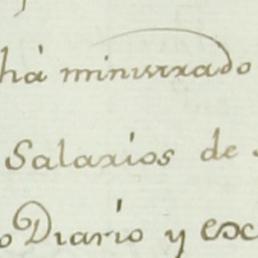 há minuxado
Salarios de
Diario y exc